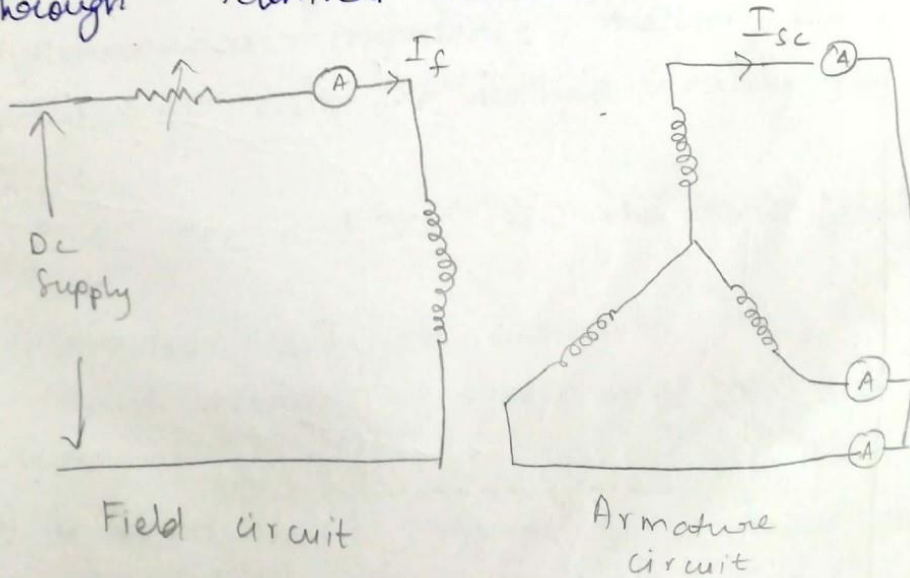 through
I_f
A
I_sc
A
Dc
Supply
A
A
Field circuit
Armature
circuit